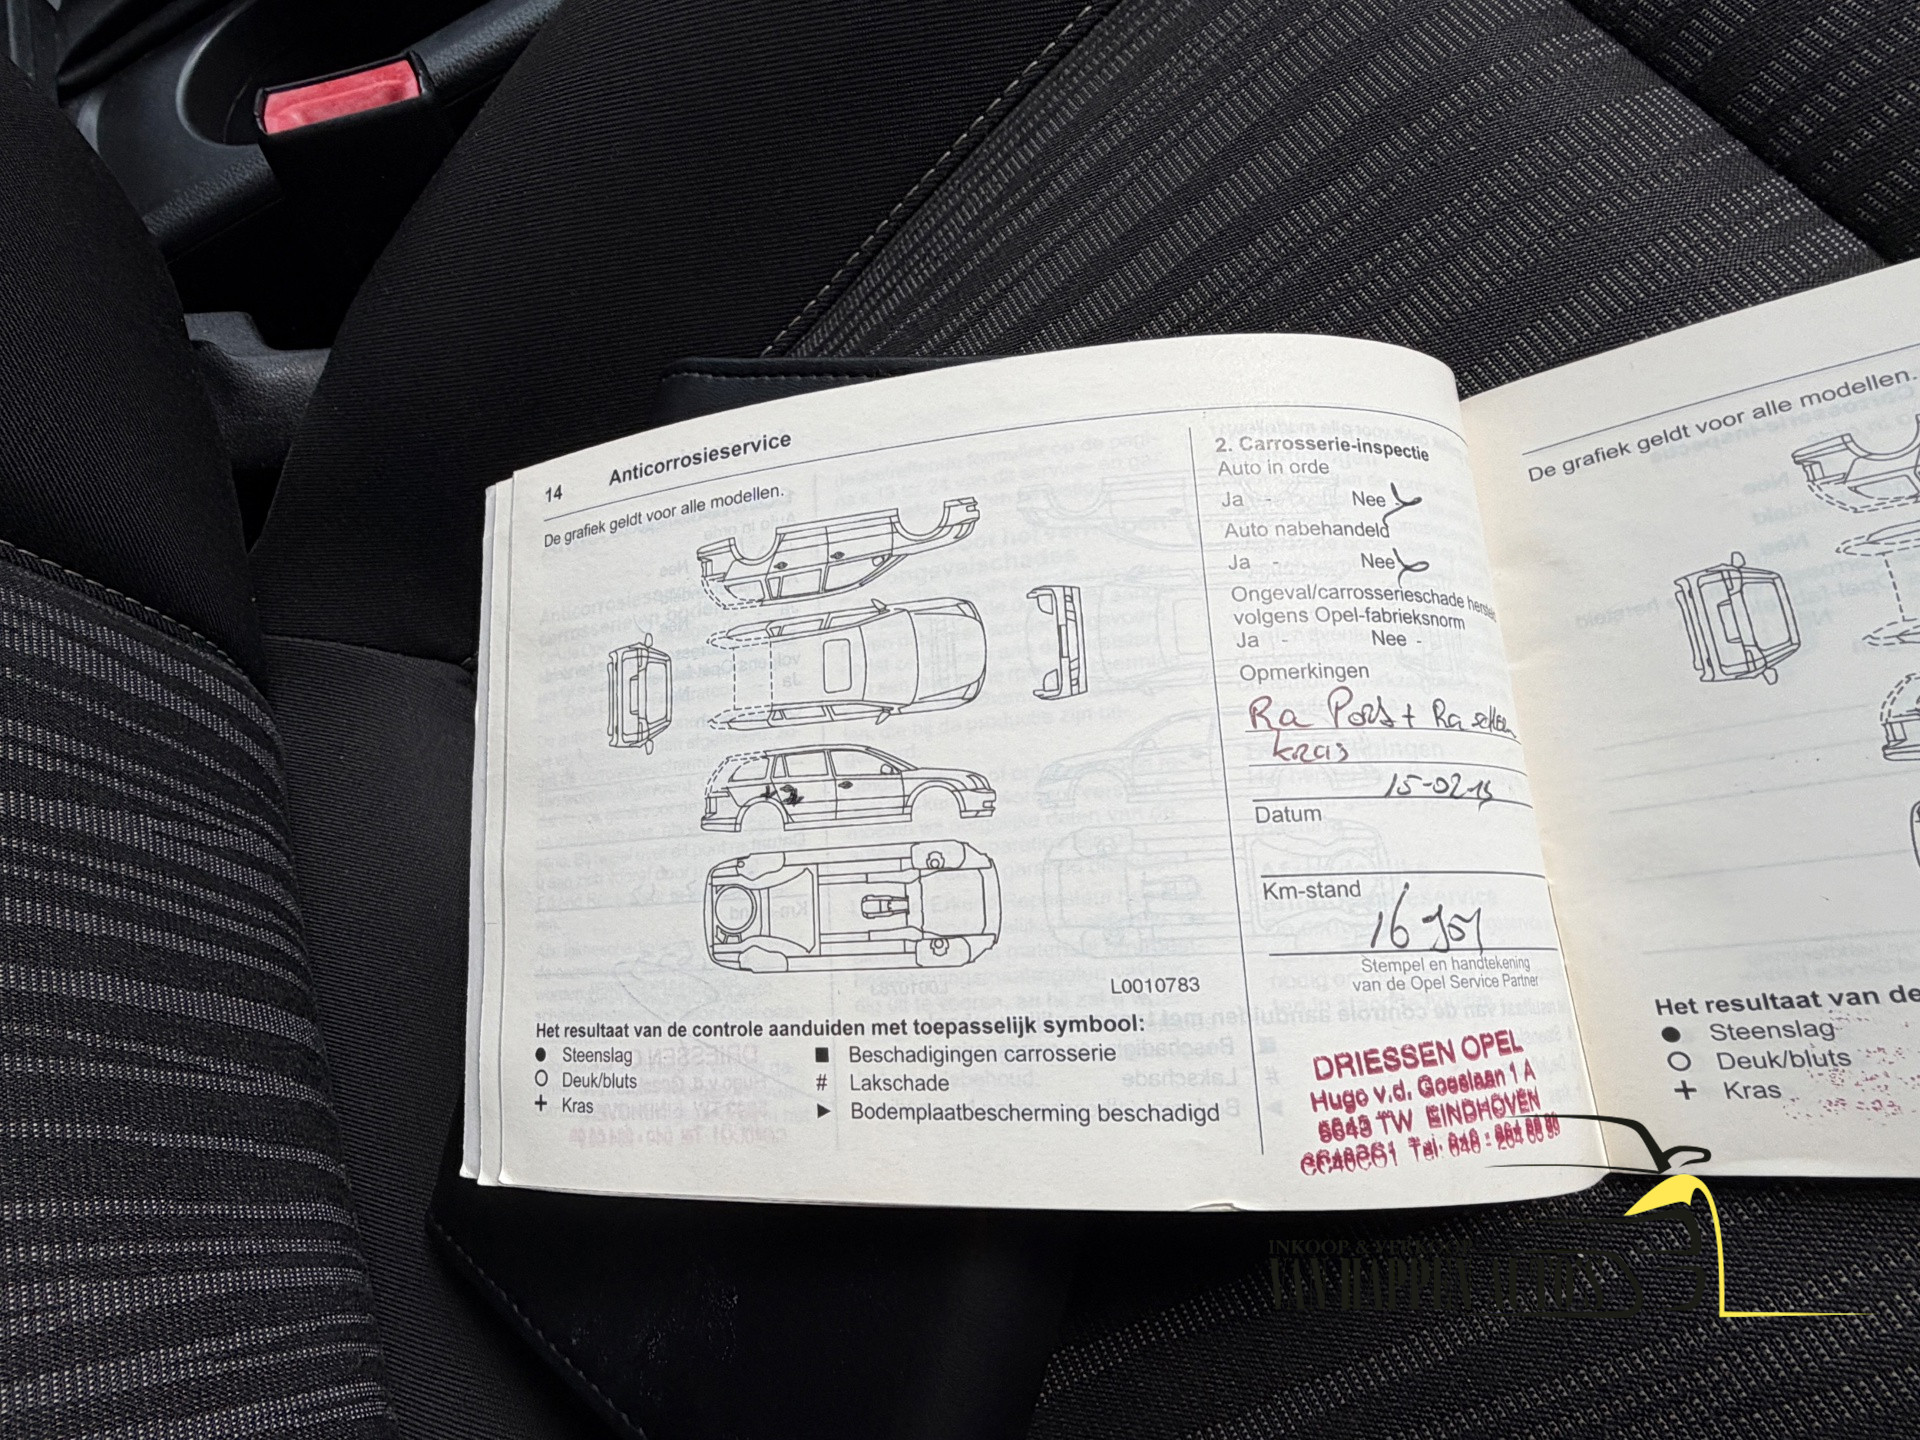 14 Anticorrosieservice
De grafiek geldt voor alle modellen.
L0010783
Het resultaat van de controle aanduiden met toepasselijk symbool:
● Steenslag
○ Deuk/bluts
+ Kras
■ Beschadigingen carrosserie
# Lakschade
► Bodemplaatbescherming beschadigd
2. Carrosserie-inspectie
Auto in orde
Ja - Nee
Auto nabehandeld
Ja - Nee
Ongeval/carrosserieschade herstel
volgens Opel-fabrieksnorm
Ja - Nee -
Opmerkingen
Ra + Ra
kras
15-02-13
Datum
Km-stand
Stempel en handtekening
van de Opel Service Partner
DRIESSEN OPEL
Hugo v.d. Goeslaan 1 A
TW EINDHOVEN
Tel:
De grafiek geldt voor alle modellen.
Het resultaat van de
● Steenslag
○ Deuk/bluts
+ Kras
INKOOP & VERKOOP